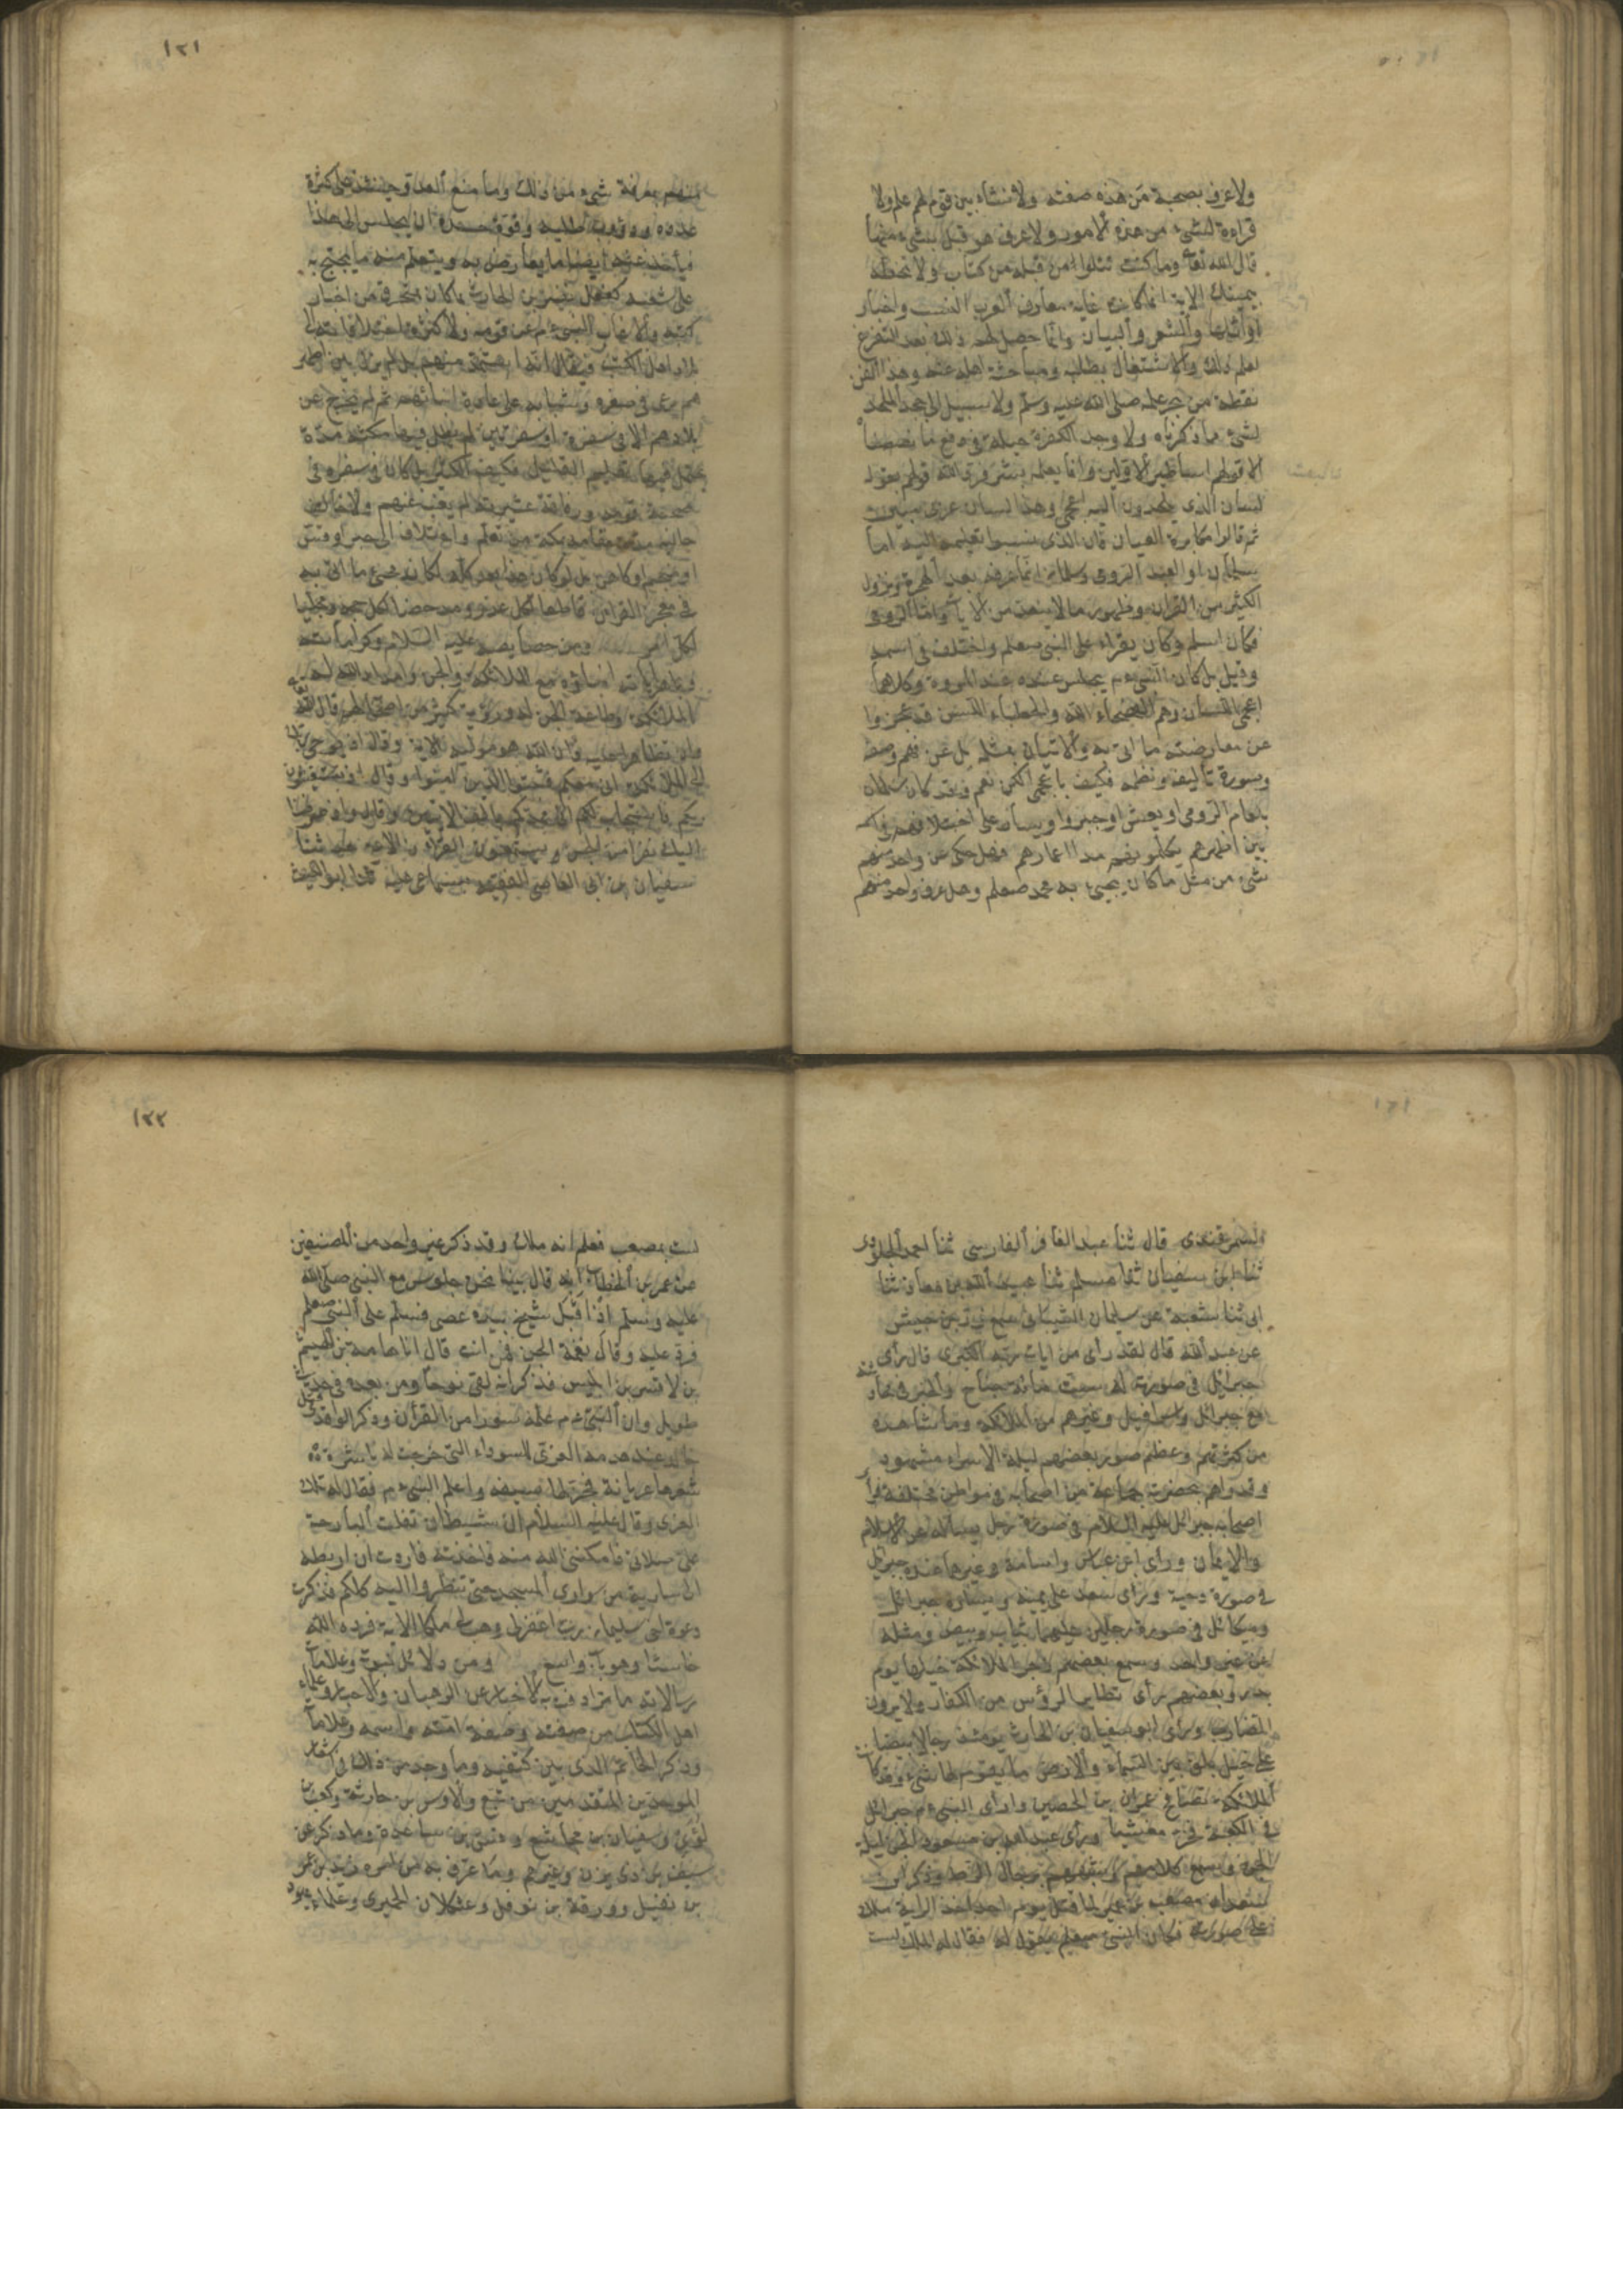 ولا عرف بصحبة من هذه صفته ولا نشأ بين قوم لهم علم ولا
قراءة لشىء من هذه الامور ولا عرف هو قبل بشىء منها
قال الله تعا وما كنت تتلوا من قبله من كتاب ولا تخطه
بيمينك الاية انما كانت غاية معارف العرب النسب واخبار
اوائلها والشعر والبيان وانما حصل لهم ذلك بعد التفرغ
لعلم ذلك والاشتغال بطلبه ومباحثة اهله عنه وهذا الفن
نقطة من بحر علمه صلى الله عليه وسلم ولا سبيل الى جحد الملحد
لشىء مما ذكرناه ولا وجد الكفرة حيلة فى دفع ما نصصنا
الا قولهم اساطير الاولين وانما يعلمه بشر فرد الله قولهم بقوله
لسان الذى يلحدون اليه اعجمى وهذا لسان عربى مبين
ثم قالوا مكابرة العيان فان الذى نسبوا تعليمه اليه اما
سلمان او العبد الرومى وسلمان انما عرفه بعد الهجرة ونزول
الكثير من القران وظهور ما لا ينعد من الايات واما الرومى
فكان اسلم وكان يقراء على النبى صعلم واختلف فى اسمه
وقيل بل كان النبى م يجلس عنده عند المروة وكلاهما
اعجمى اللسان وهم الفصحاء اللد والخطباء اللسن قد عجزوا
عن معارضة ما اتى به والاتيان بمثله بل عن فهم وصفه
وسورة تأليفه ونظمه فكيف باعجمى الكن نعم وقد كان سلمان
بلعام الرومى او يعيش او جبر او يسار على اختلافهم فى اسمه
بين اظهرهم يكلمونهم مدا اعمارهم فهل حكى عن واحد منهم
شىء من مثل ما كان يجيى به محمد صعلم وهل عرف واحد منهم
١٢١
منهم بمعرفة شىء من ذلك وما منع العدو حينئذ على كثرة
عدده ودؤوب طلبه وقوة حسده ان يجلس الى هذا
فيأخذ عنه ايضا ما يعارض به ويتعلم منه ما يحتج به
على شغبه كفعل النضر بن الحارث بما كان يمخرق من اخبار
كتبه ولا غاب النبى م عن قومه ولا كثرت اختلافاته الى
بلاد اهل الكتب فيقال انه استمد منهم بل لم يزل بين اظهر
هم يرعى فى صغره وشبابه على عادة ابنائهم ثم لم يخرج عن
بلادهم الا فى سفرة او سفرتين لم يطل فيها مكثه مدة
يحتمل فيها تعليم القليل فكيف الكثير بل كان فى سفره فى
صحبة قومه ورفاقة عشيرته لم يغب عنهم ولا خالف
حاله مدة مقامه بمكة من تعلم واختلاف الى حبر او قس
او منجم او كاهن بل لو كان هذا بعد كله لكان مجىء ما اتى به
فى معجز القران قاطعا لكل عذر ومدحضا لكل حجة ومجليا
لكل امر ومن خصايصه عليه السلام وكراماته
وباهر اياته انباؤه مع الملائكة والجن وامداد الله له
بالملائكة وطاعة الجن له ورؤية كثير من اصحابه لهم قال الله تعا
وان تظاهرا عليه فان الله هو موليه الاية وقال اذ يوحى ربك
الى الملائكة انى معكم فثبتوا الذين امنوا وقال اذ تستغيثون
ربكم فاستجاب لكم انى ممدكم بالف الايتين وقال واذ صرفنا
اليك نفرا من الجن يستمعون القران الاية حدثنا
سفيان بن ابى العاصى الفقيه بسماعى عليه ثنا ابو الليث
السمرقندى قال ثنا عبد الغافر الفارسى ثنا احمد الجلودى
ثنا ابن سفيان ثنا مسلم ثنا عبيد الله بن معاذ ثنا
ابى ثنا شعبة عن سليمان الشيبانى سمع زر بن حبيش
عن عبد الله قال لقد راى من ايات ربه الكبرى قال راى
جبرائل فى صورته له ست مائة جناح والخبر فى محادثته
مع جبرائل واسرافيل وغيرهم من الملائكة وما شاهده
من كثرتهم وعظم صور بعضهم ليلة الاسراء مشهود
وقد راهم بحضرته جماعة من اصحابه فى مواطن مختلفة فرأى
اصحابه جبرائل عليه السلام فى صورة رجل يسأله عن الاسلام
والايمان وراى ابن عباس واسامة وغيرهما عنده جبرئيل
فى صورة دحية وراى سعد على يمينه ويساره جبرائل
وميكائل فى صورة رجلين عليهما ثياب وبيض ومثله
عن غير واحد وسمع بعضهم زجر الملائكة خيلها يوم
بدر وبعضهم راى تطاير الرؤس من الكفار ولا يرون
الضارب وراى ابو سفيان بن الحارث يومئذ رجالا بيضا
على خيل بلق بين السماء والارض ما يقوم لها شىء وقد كانت
الملائكة تصافح عمران بن الحصين وارى النبى م جبرائل
فى الكعبة فخر مغشيا وراى عبد الله بن مسعود الجن ليلة
الجن وسمع كلامهم وشبههم برجال الزط وذكر ابن
سعد ان مصعب بن عمير لما قتل يوم احد اخذ الراية ملك
على صورته فكان النبى صعلم يقول له فقال له الملك لست
١٢٢
لست بمصعب فعلم انه ملك وقد ذكر غير واحد من المصنفين
عن عمر بن الخطاب انه قال بينا نحن جلوس مع النبى صلى الله
عليه وسلم اذ اقبل شيخ بيده عصى فسلم على النبى صعلم
فرد عليه وقال نغمة الجن من انت قال انا هامة بن الهيثم
بن لاقس بن ابليس فذكر انه لقى نوحا ومن بعده فى حديث
طويل وان النبى م علمه سورا من القرآن وذكر الواقدى قتل
خالد عند هدمه العزى للسوداء التى خرجت له ناشرة
شعرها عريانة فجزلها بسيفه واعلم النبى م فقال له تلك
العزى وقال عليه السلام ان شيطانا تفلت البارحة
على صلاتى فامكننى الله منه فاخذته فاردت ان اربطه
الى سارية من سوارى المسجد حتى تنظروا اليه كلكم فذكرت
دعوة اخى سليمان رب اغفرلى وهب لى ملكا الاية فرده الله
خاسئا وهو باب واسع ومن دلائل نبوته وعلامات
رسالاته ما ترادفت به الاخبار عن الرهبان والاحبار وعلماء
اهل الكتب من صفته وصفة امته واسمه وعلاماته
وذكر الخاتم الذى بين كتفيه وما وجد من ذلك فى اشعار
الموحدين المتقدمين من تبع والاوس بن حارثة وكعب بن
لؤى وسفيان بن مجاشع وقس بن ساعدة وما ذكر عن
سيف بن ذى يزن وغيرهم وما عرف به من امره زيد بن عمرو
بن نفيل وورقة بن نوفل وعثكلان الحميرى وعلماء يهود